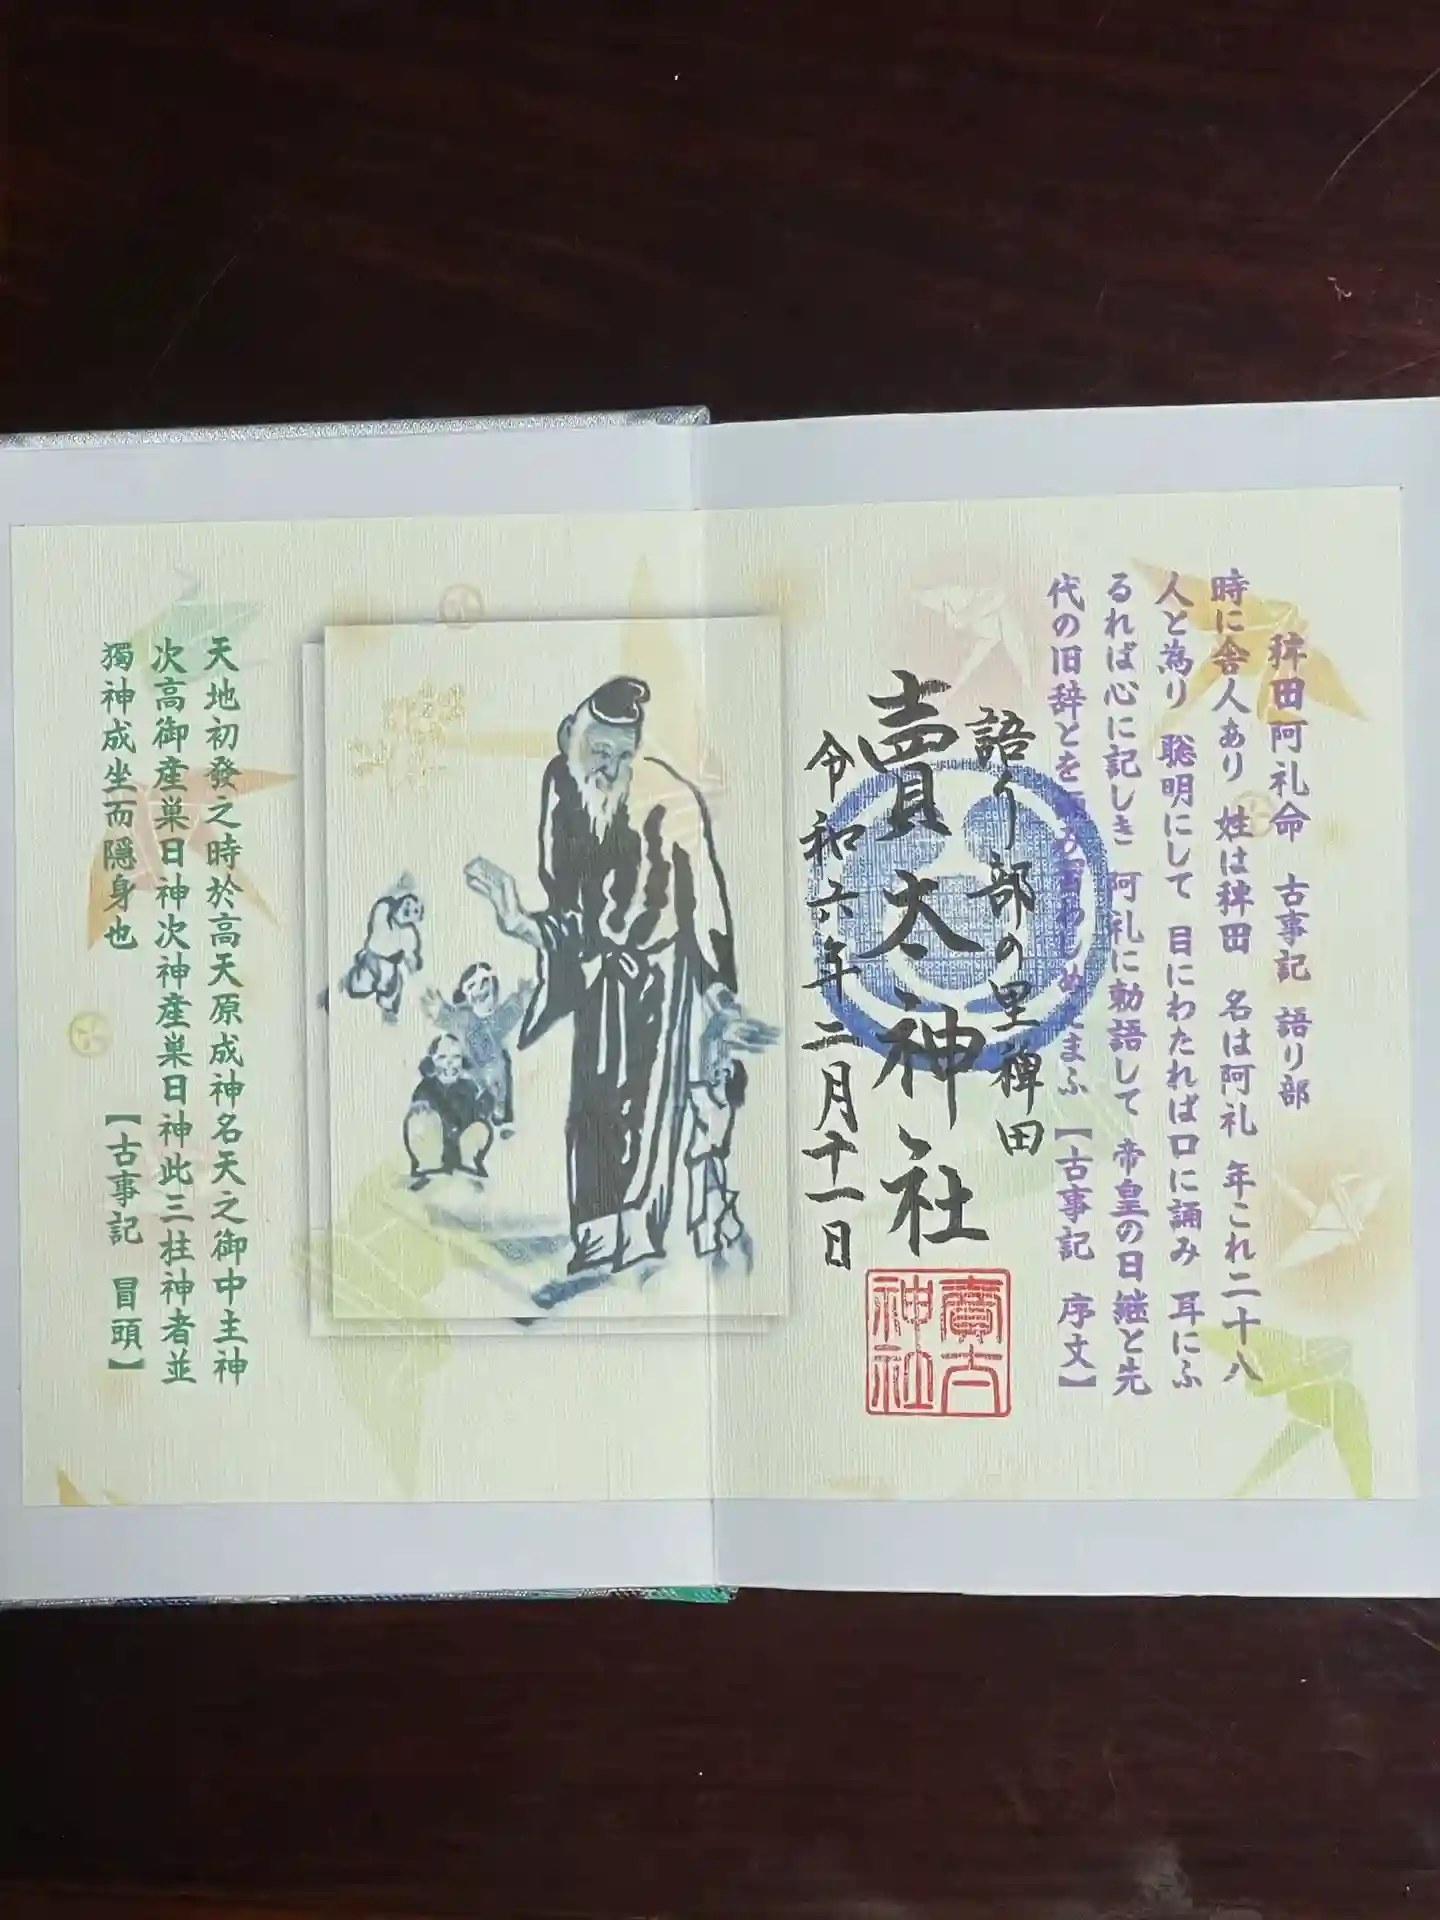 稗田阿礼命 古事記 語り部
時に舎人あり 姓は稗田 名は阿礼 年これ二十八
人と為り 聡明にして 目にわたれば口に誦み 耳にふ
るれば心に記しき 阿礼に勅語して 帝皇の日継と先
代の旧辞とを誦み習わしめたまふ【古事記 序文】
語り部の里稗田
賣太神社
令和六年二月十一日
賣太
神社
天地初發之時於高天原成神名天之御中主神
次高御産巣日神次神産巣日神此三柱神者並
獨神成坐而隠身也 【古事記 冒頭】